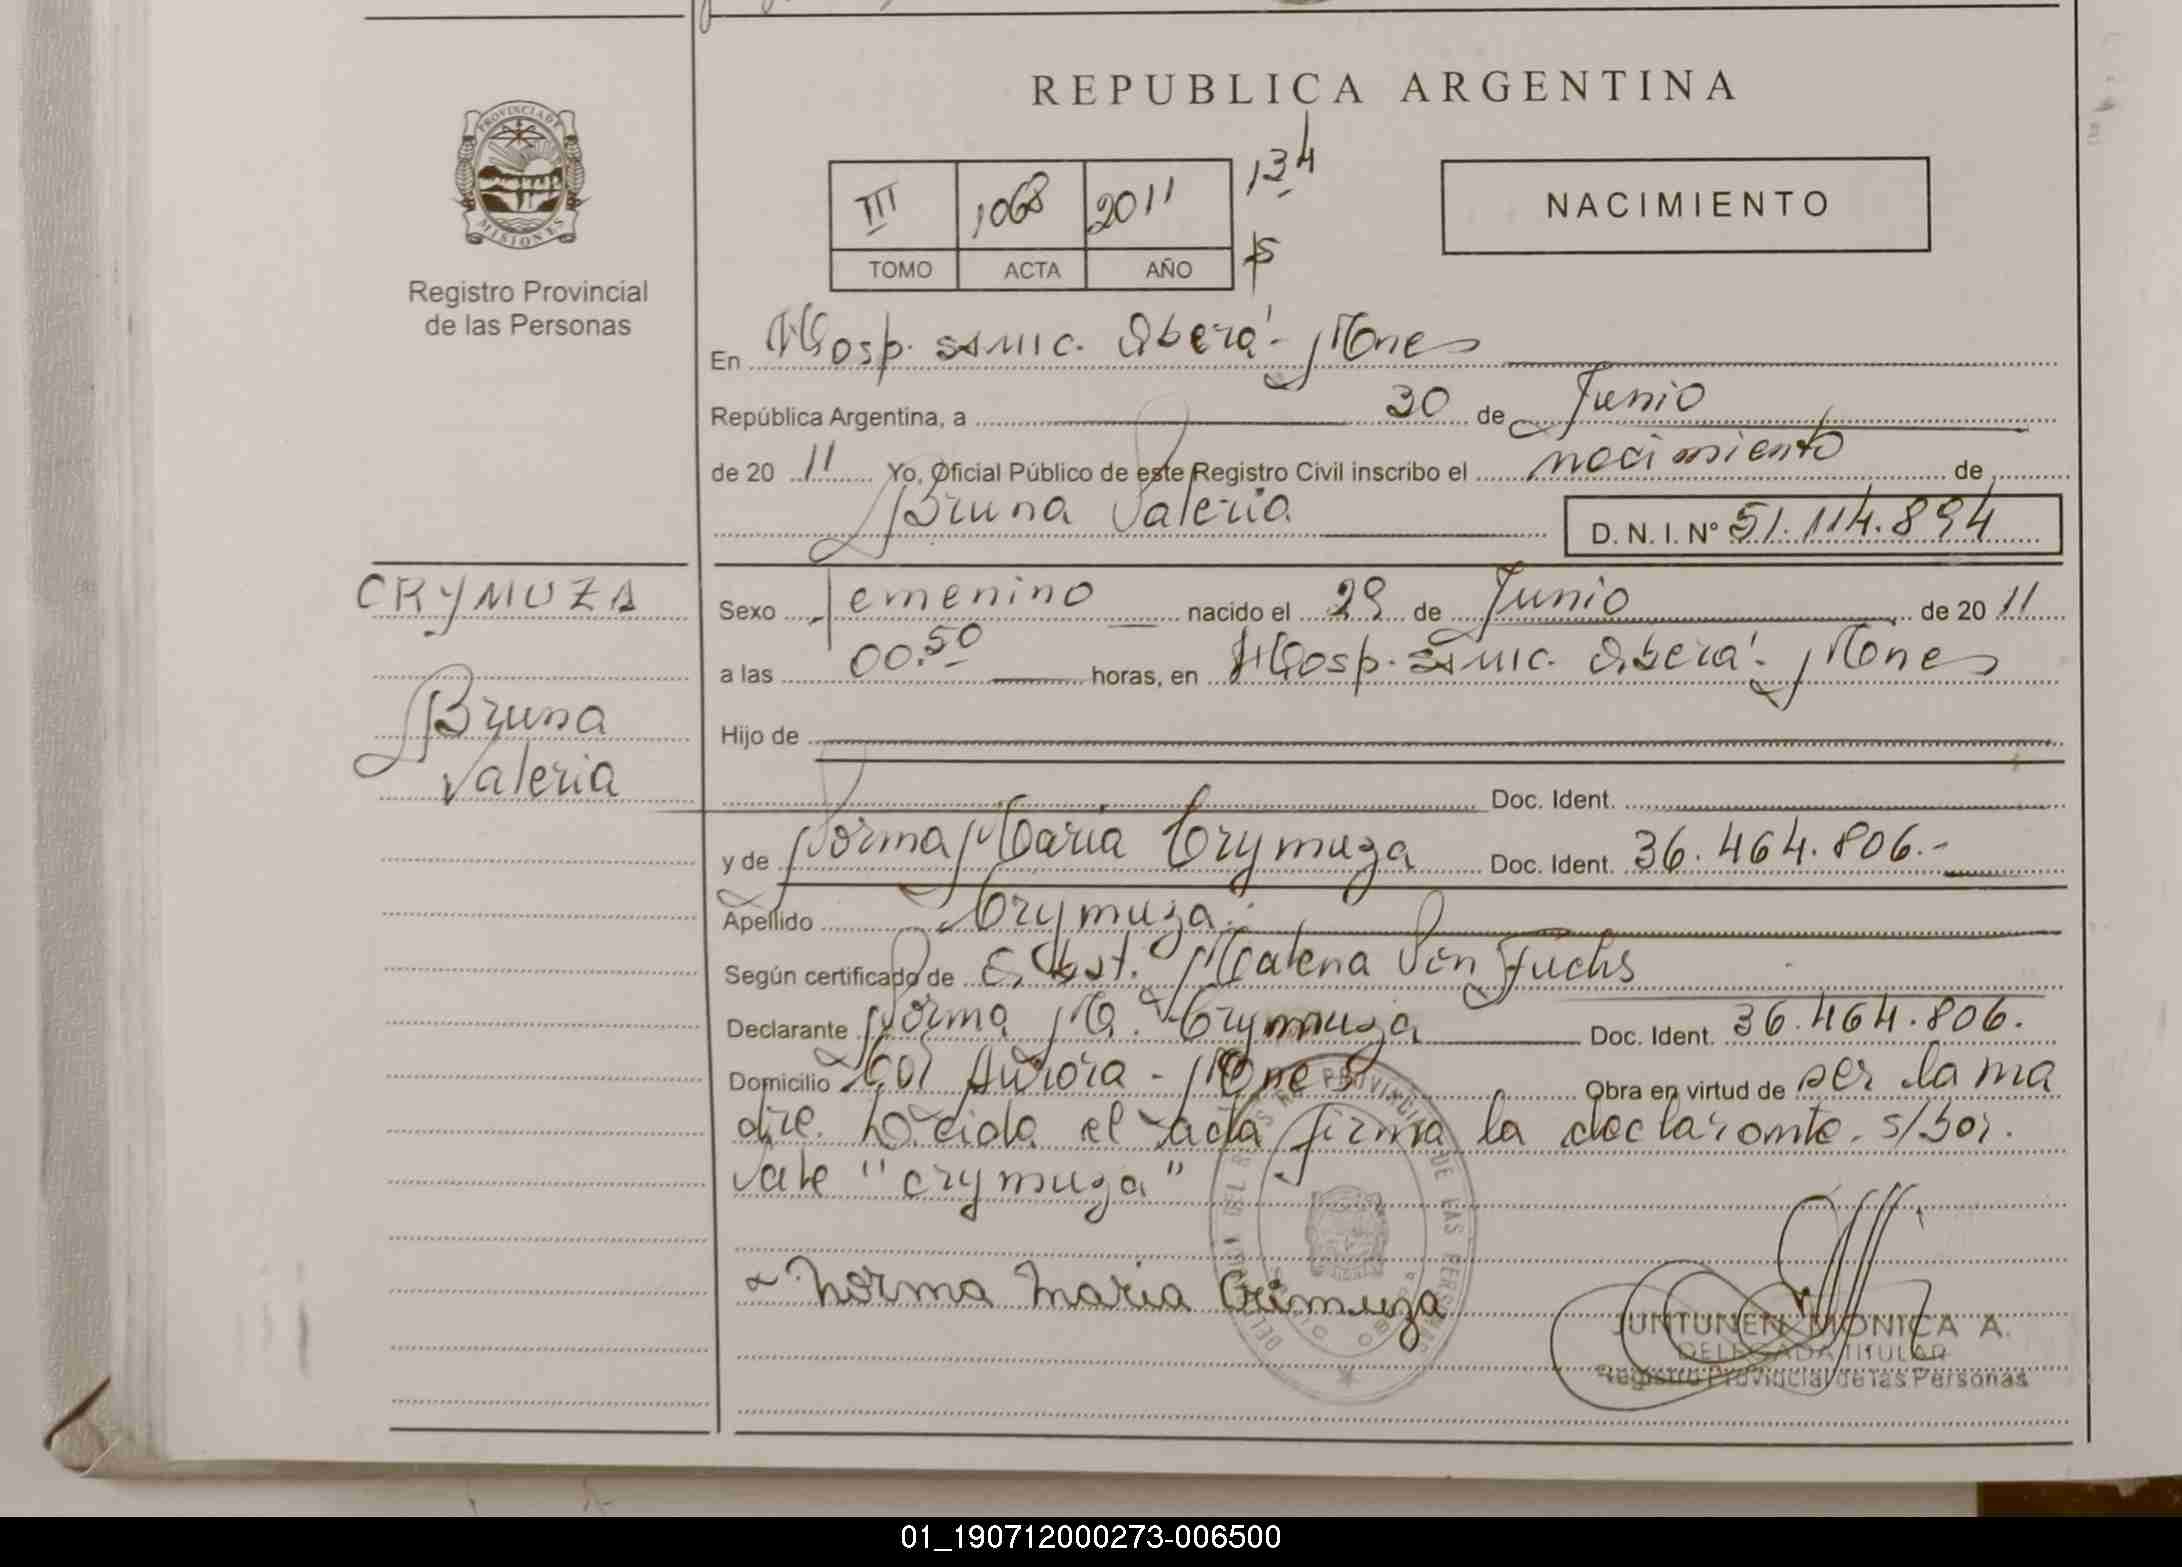 REPUBLICA ARGENTINA
PROVINCIA DE
MISIONES
Registro Provincial
de las Personas
III 1068 2011 134
TOMO ACTA AÑO
NACIMIENTO
En Hosp. SAMIC. Oberá - Mones
República Argentina, a 30 de Junio
de 20 11 Yo, Oficial Público de este Registro Civil inscribo el nacimiento de
Bruna Valeria D. N. I. Nº 51.114.894
CRYMUZA
Bruna
Valeria
Sexo Femenino nacido el 29 de Junio de 20 11
a las 00.50 horas, en Hosp. SAMIC. Oberá - Mones
Hijo de
Doc. Ident.
y de Norma Maria Crymuza Doc. Ident. 36.464.806.-
Apellido Crymuza.
Según certificado de Obst. Malena Von Fuchs
Declarante Norma M. Crymuza Doc. Ident. 36.464.806.
Domicilio Col Aurora - Mones Obra en virtud de ser la ma
dre. Leida el acta firma la declarante. s/bor.
vale "crymuza"
Norma Maria Crimuza
JUNTUNEN MONICA A.
DELEGADA TITULAR
Registro Provincial de las Personas
01_190712000273-006500